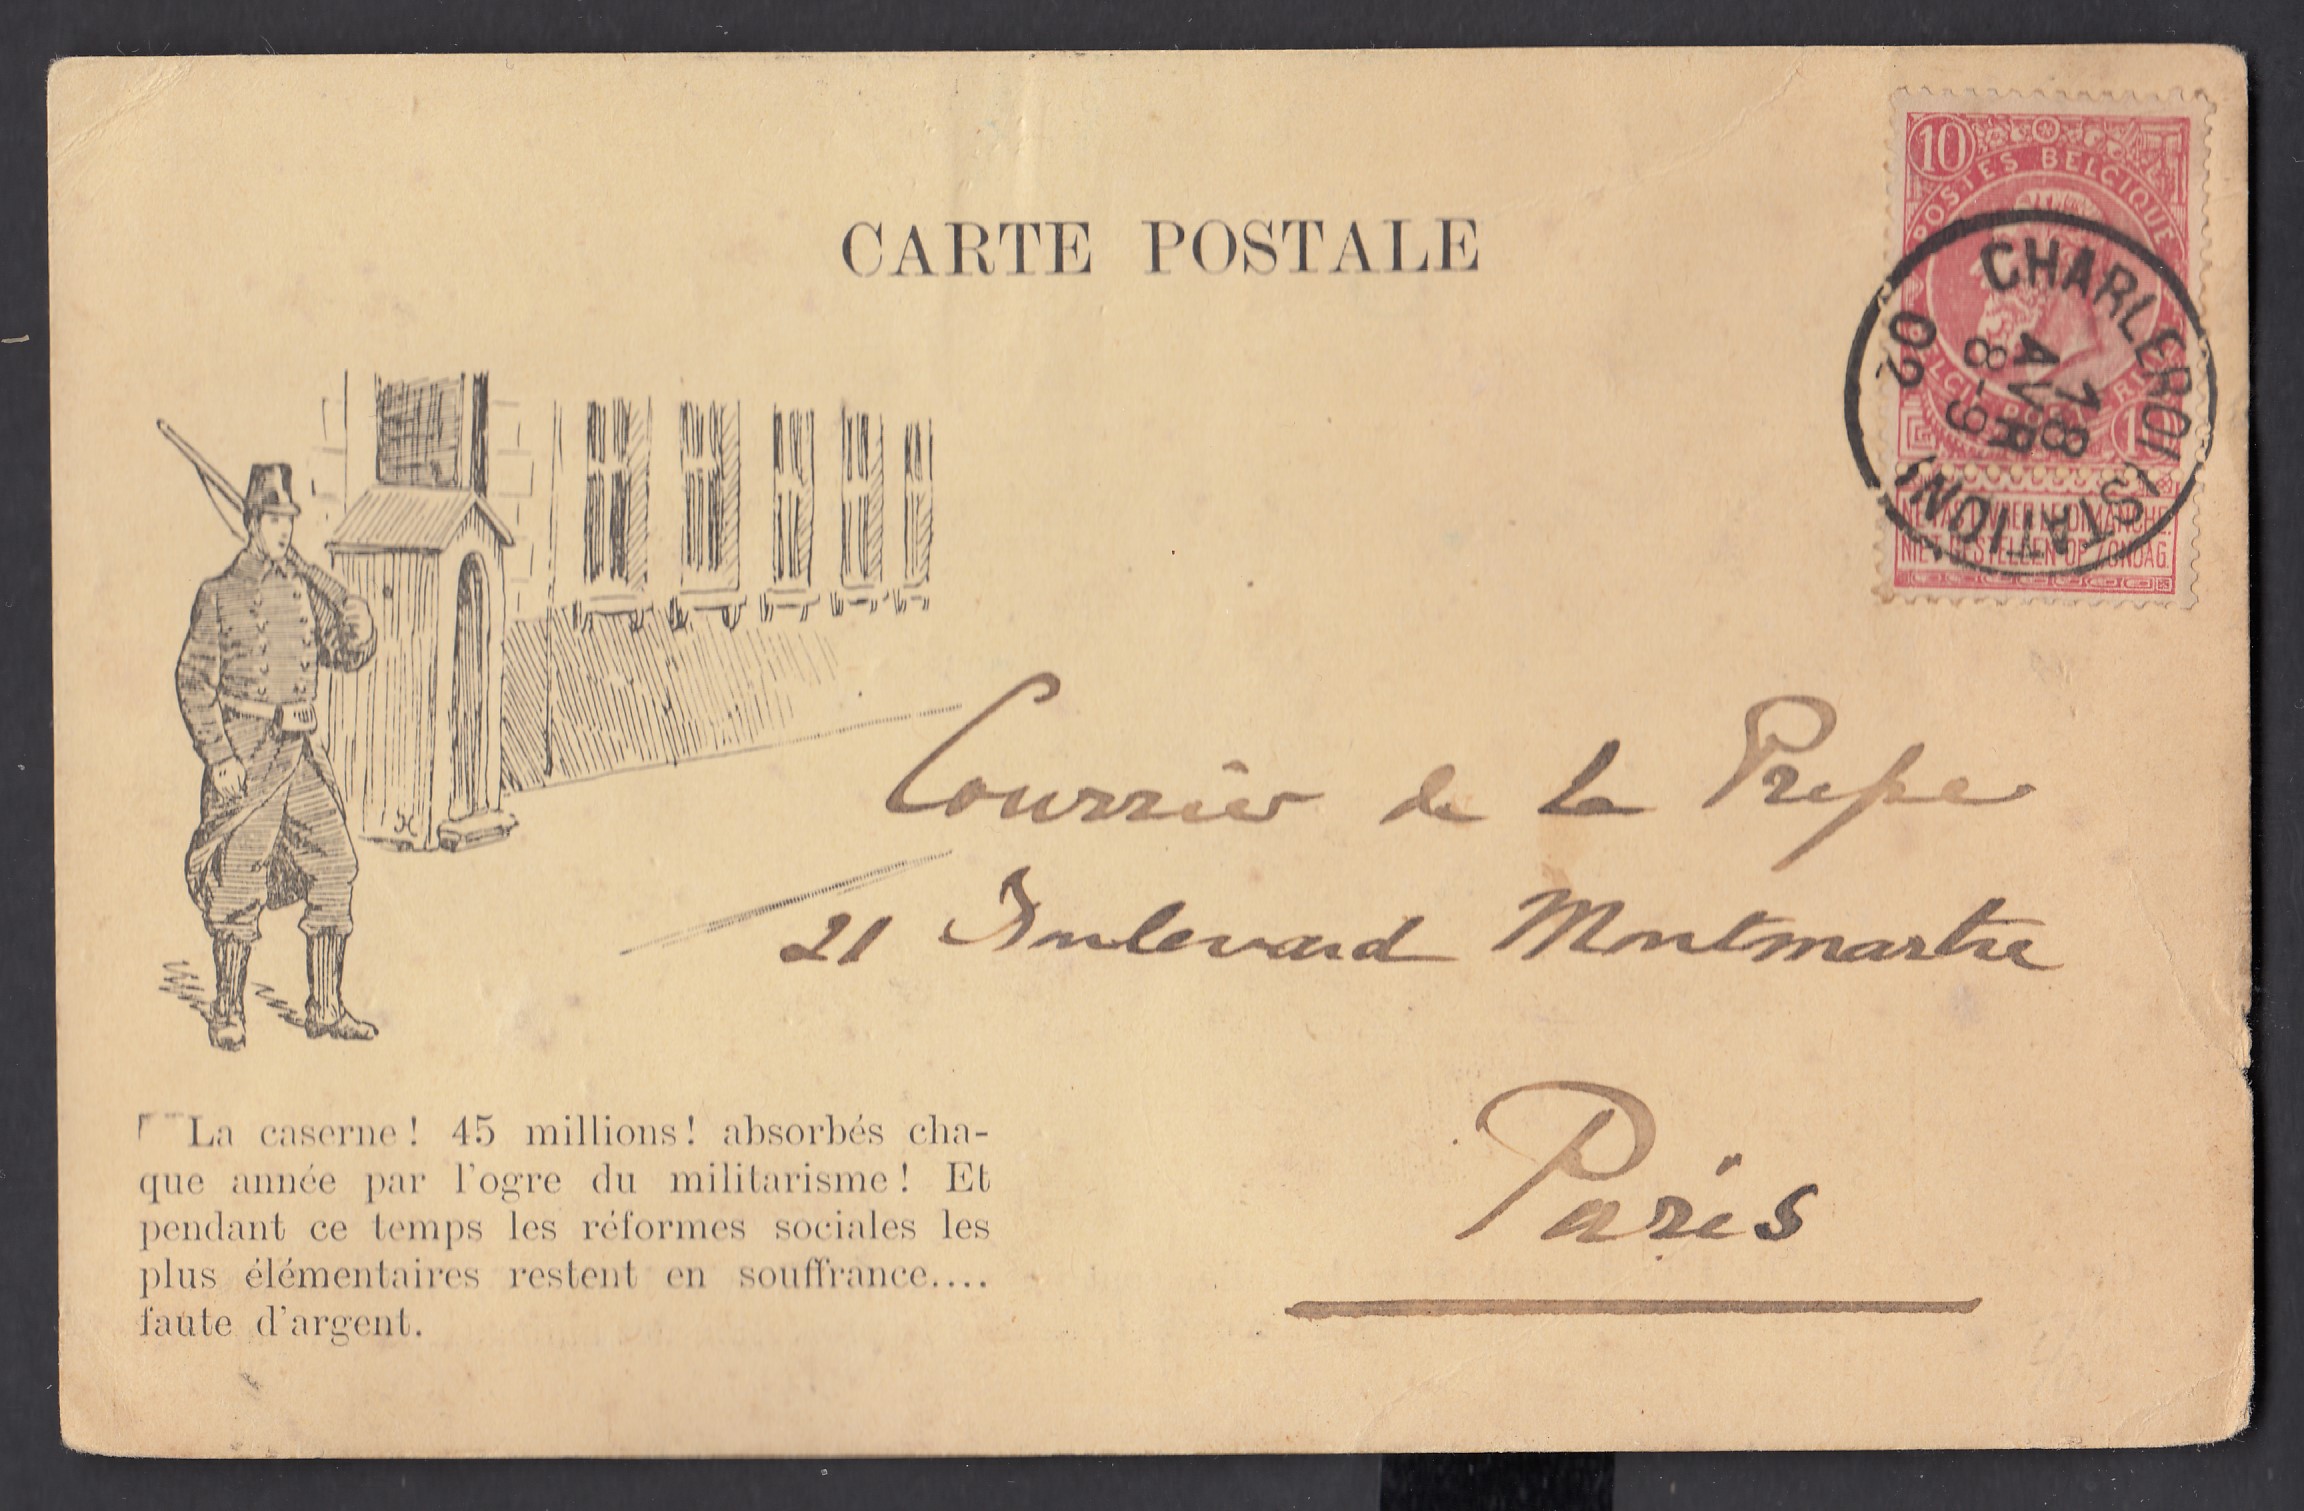 CARTE POSTALE
10
POSTES BELGIQUE
CHARLEROI (STATION)
18
AVR
8-9
02
NE PAS LIVRER LE DIMANCHE
NIET BESTELLEN OP ZONDAG
Courrier de la Presse
21 Boulevard Montmartre
Paris
La caserne! 45 millions! absorbés cha-
que année par l'ogre du militarisme! Et
pendant ce temps les réformes sociales les
plus élémentaires restent en souffrance....
faute d'argent.